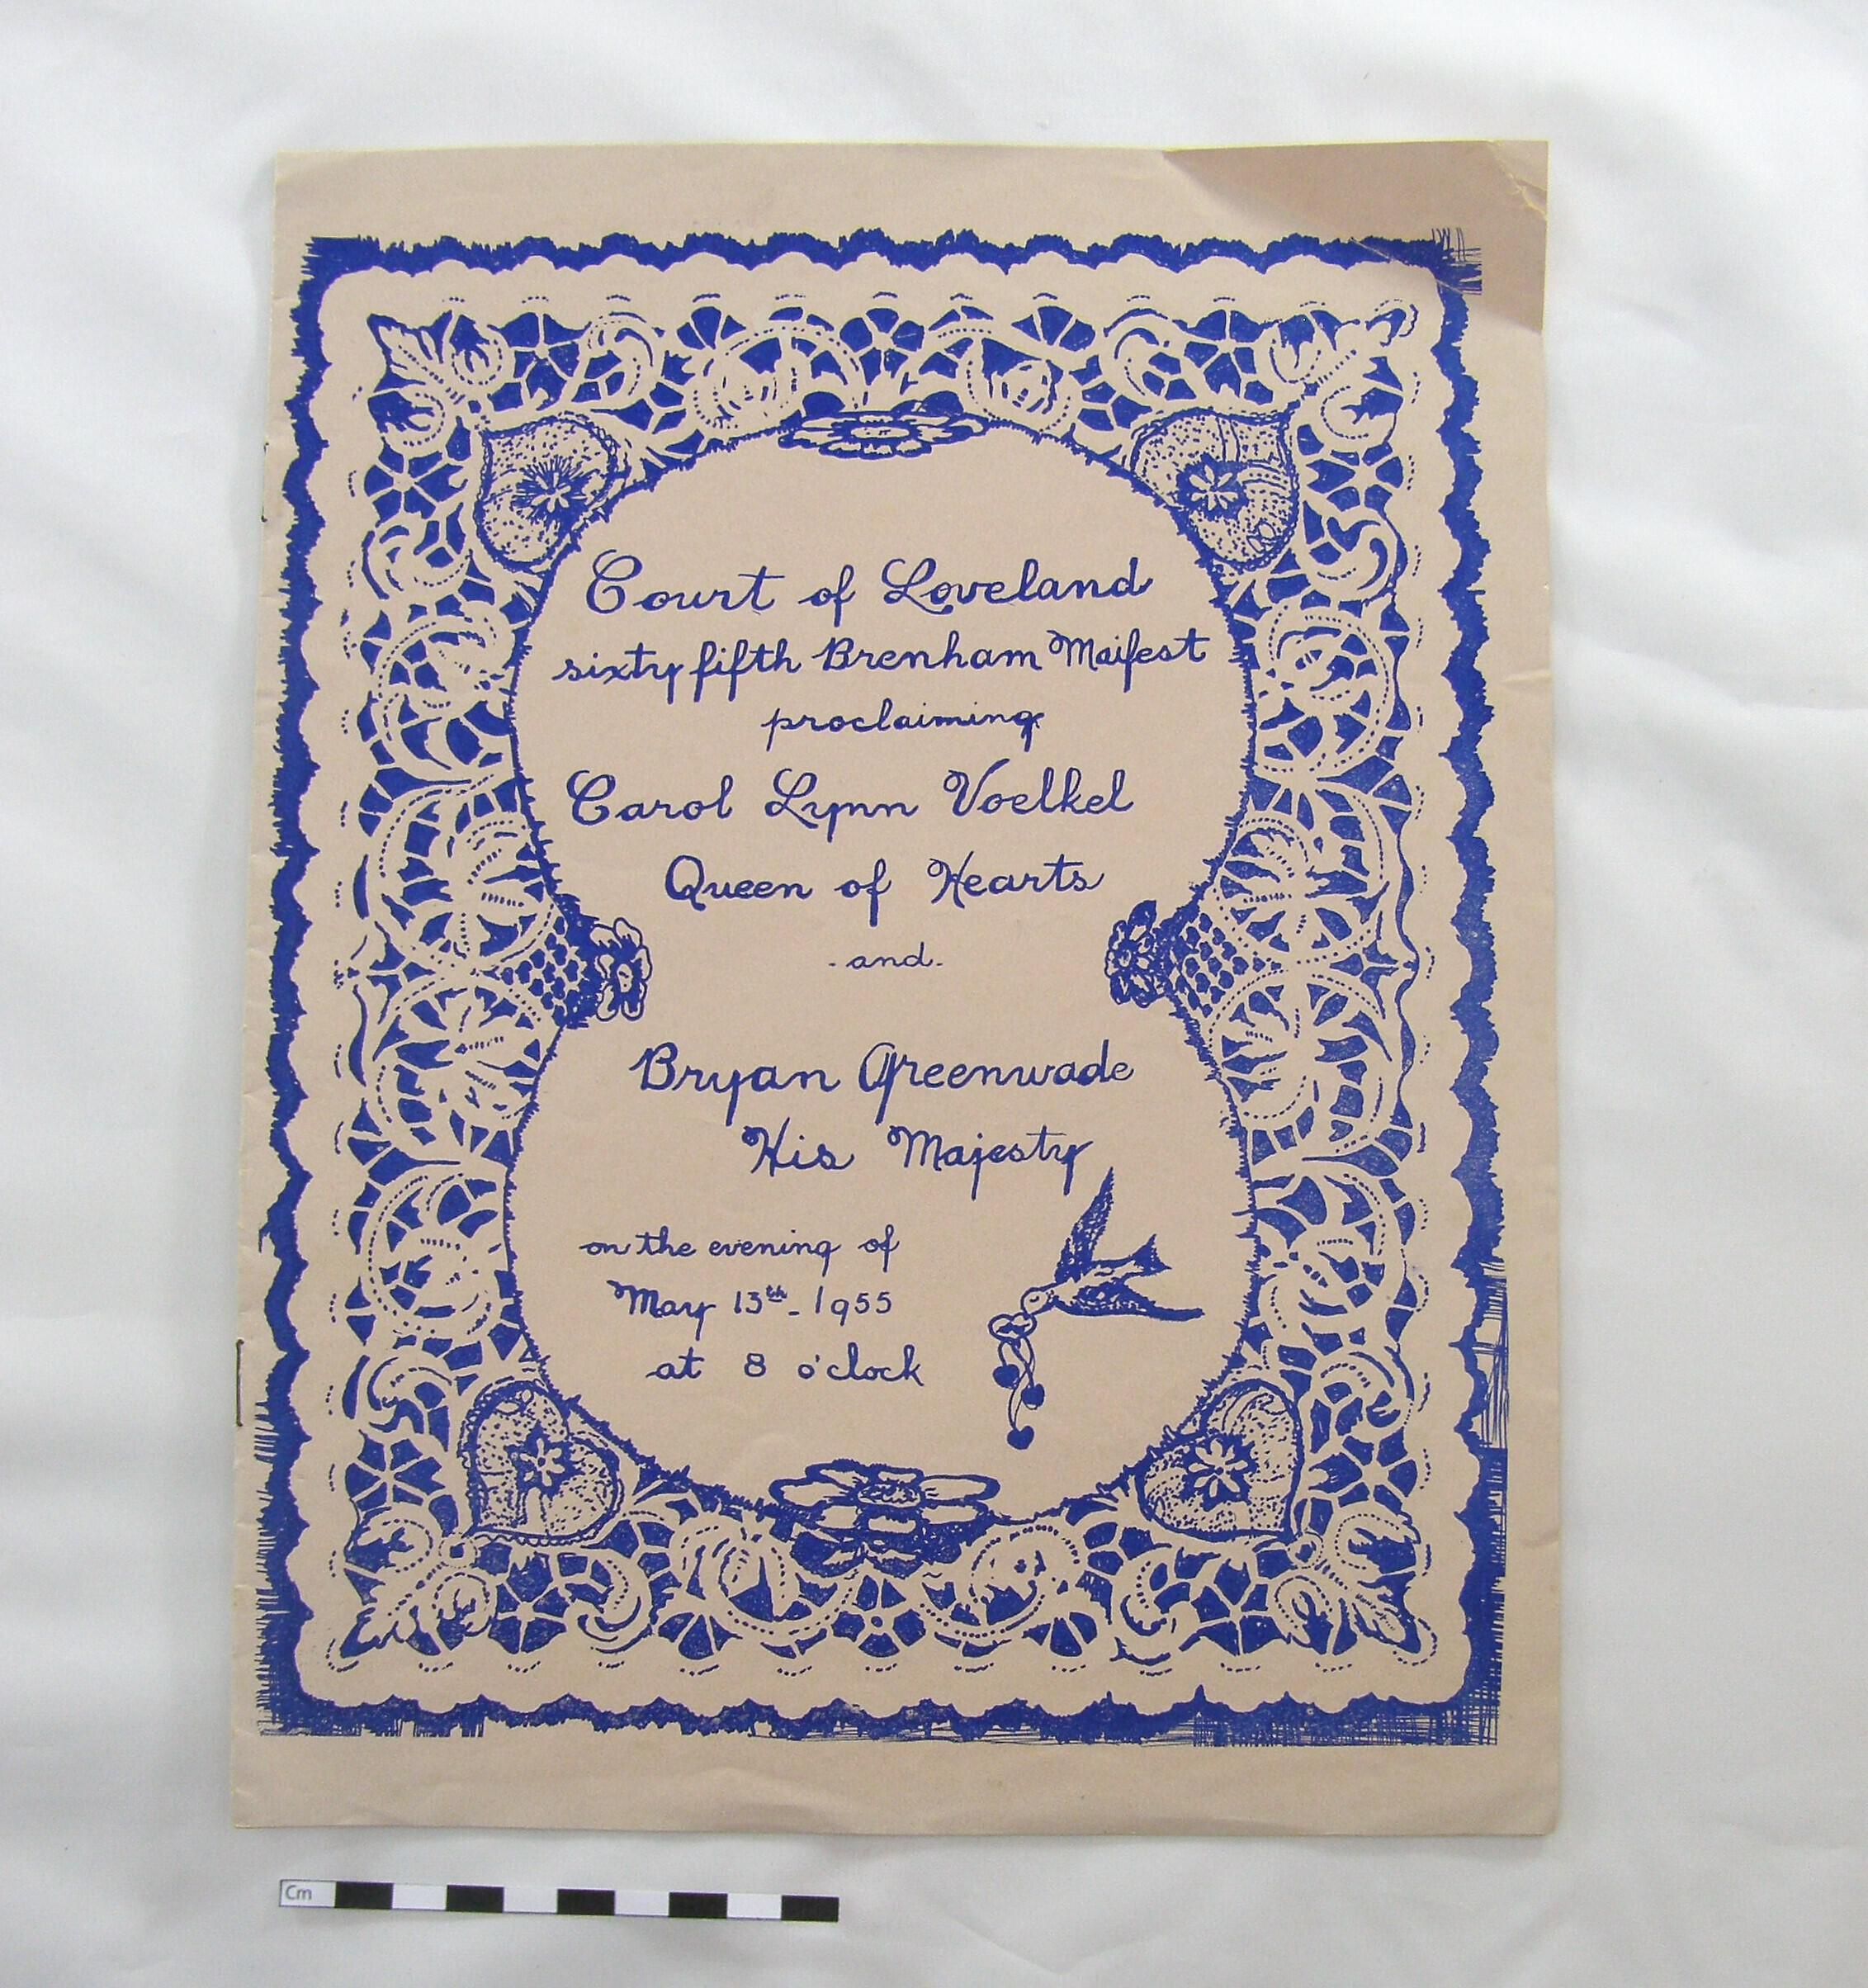 Court of Loveland
sixty fifth Brenham Maifest
proclaiming
Carol Lynn Voelkel
Queen of Hearts
-and-
Bryan Greenwade
His Majesty
on the evening of
May 13th - 1955
at 8 o'clock
Cm